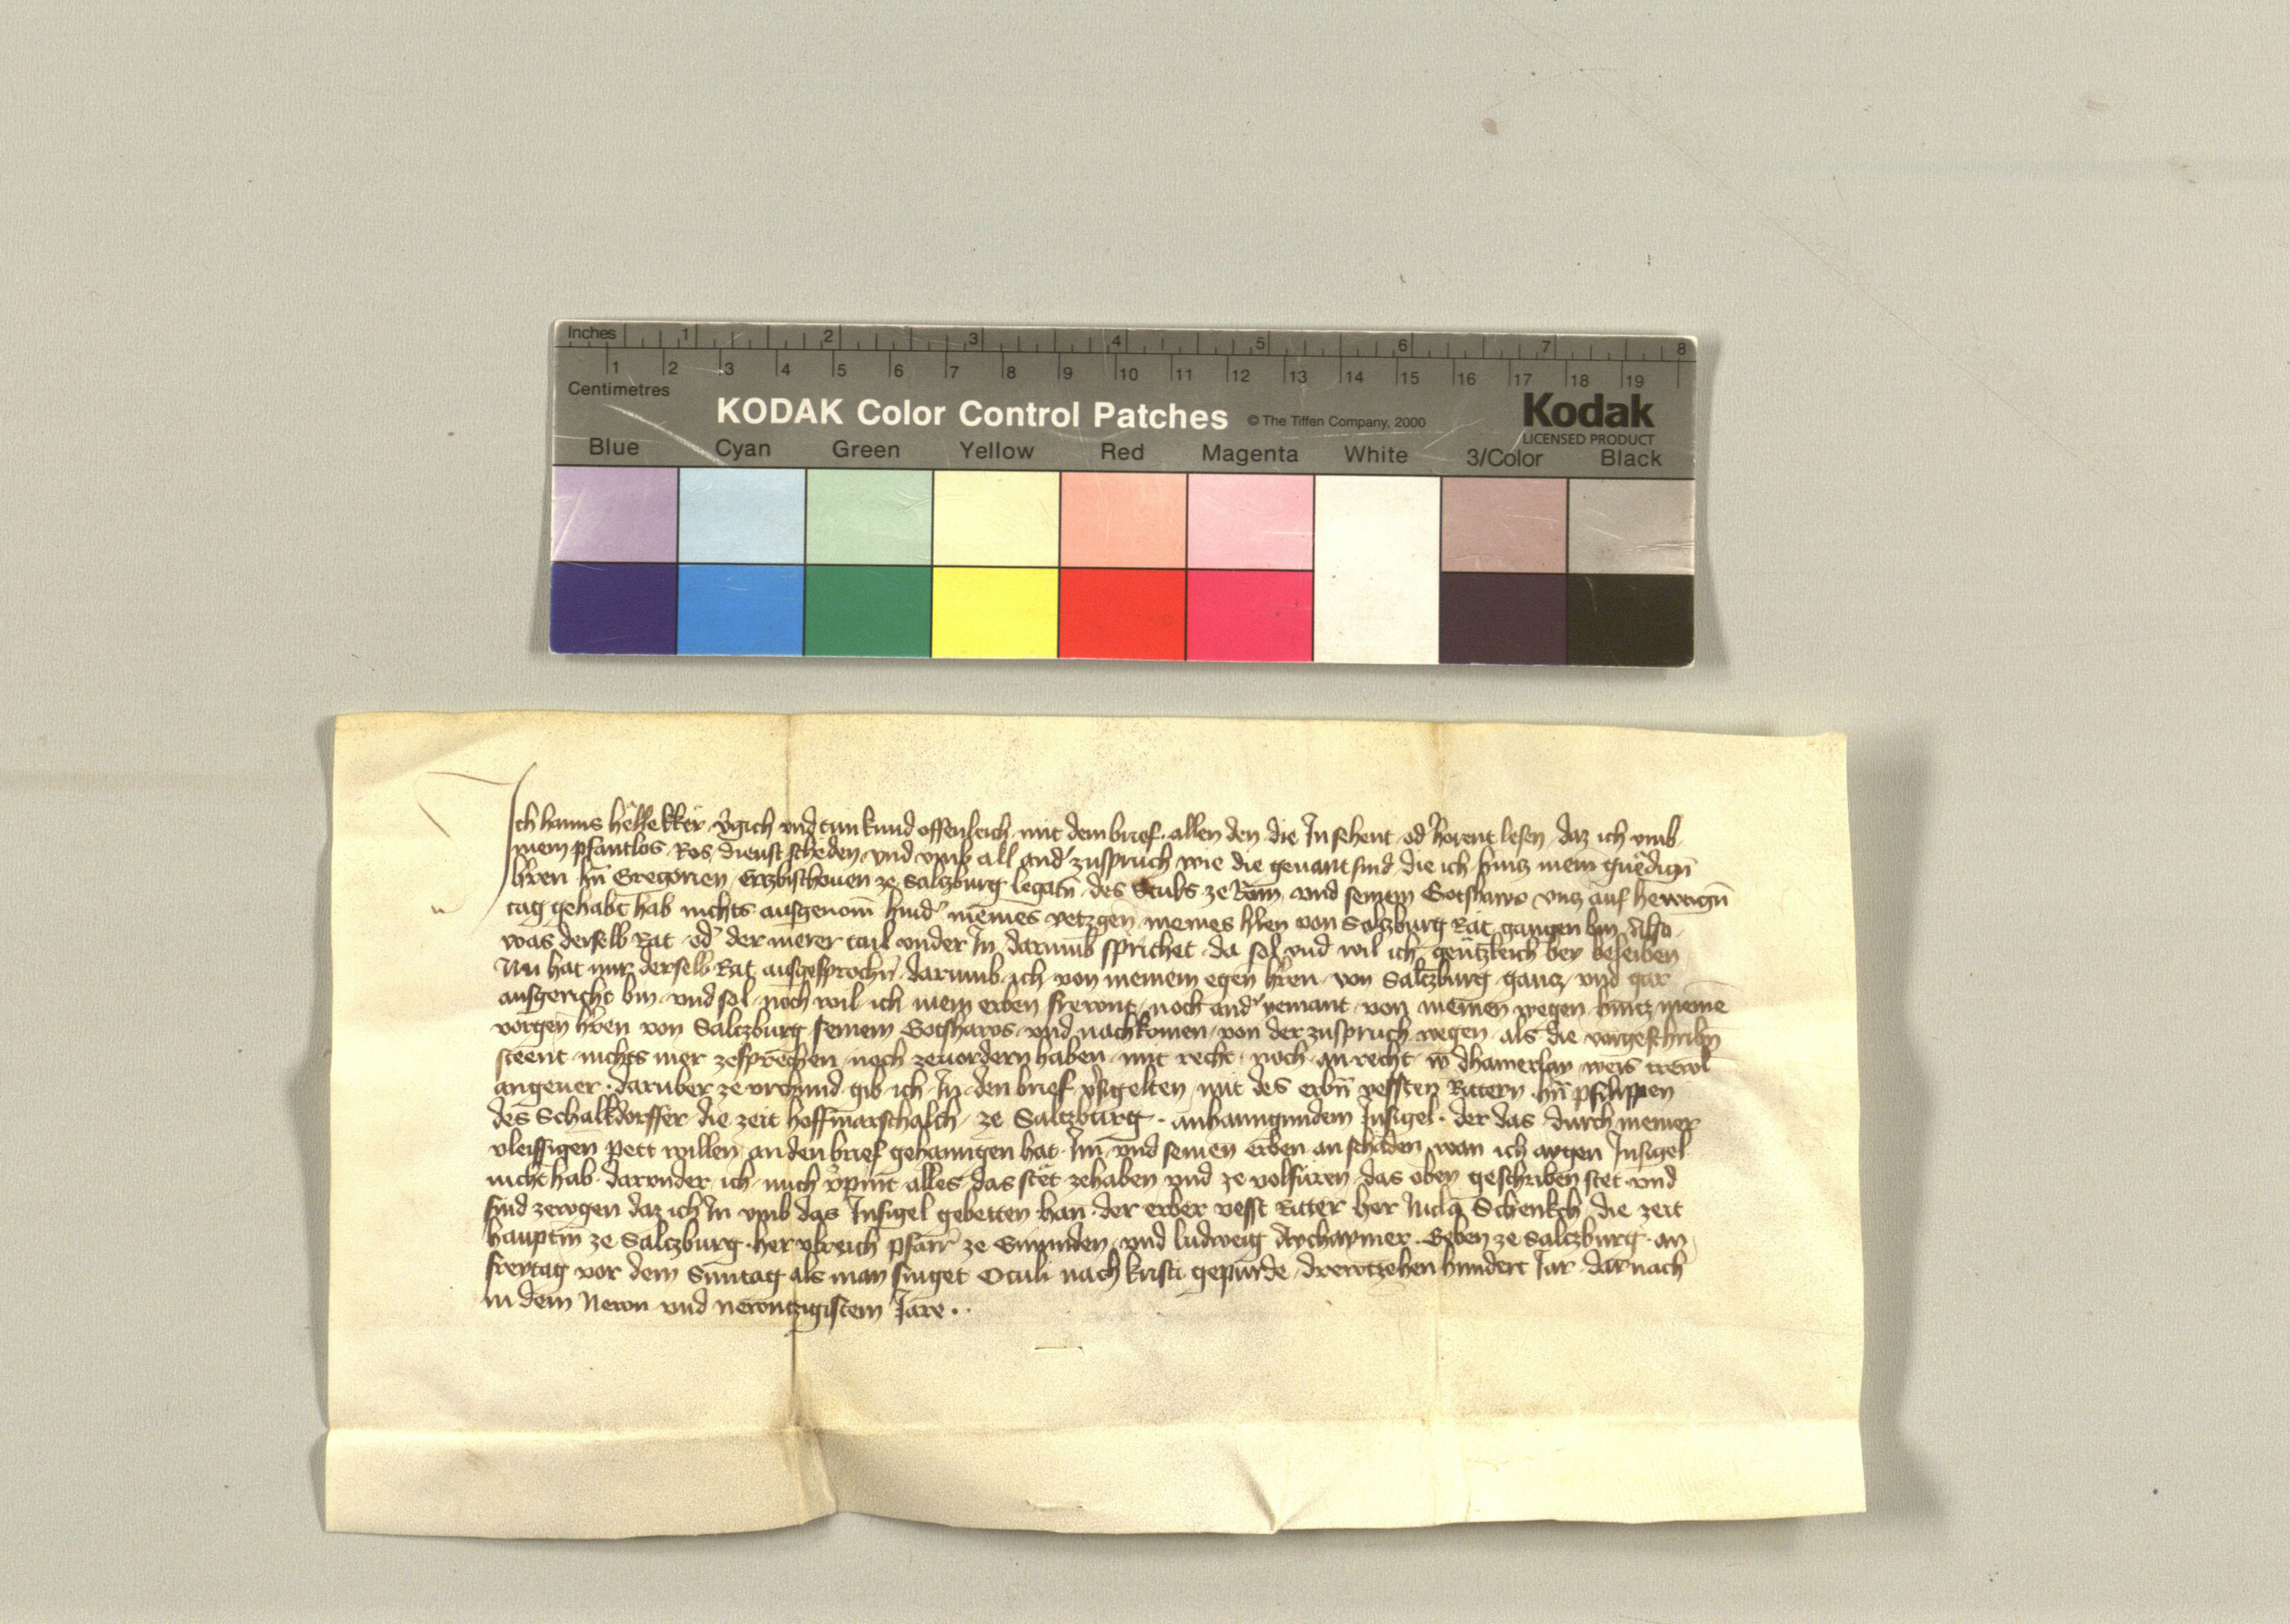 Inches 1 2 3 4 5 6 7 8
1 2 3 4 5 6 7 8 9 10 11 12 13 14 15 16 17 18 19
Centimetres
KODAK Color Control Patches © The Tiffen Company, 2000 Kodak
LICENSED PRODUCT
Blue Cyan Green Yellow Red Magenta White 3/Color Black
Ich hanns hellekker v̾gich vnd tun kund offenleich mit dem brief allen den die In sehent od̾ hörent lesen daz ich vmb
mein pfantlos Ros dienst scheden vnd vmb all and̾ zuspruch wie die genant sind die ich hincz mein̄ gnedign̄
h̾ren hn̄ Gregorien Erzbischouen ze Salczburg legatn̄ des Stuls ze Rom vnd seinem Gotshaws vncz auf hewtign̄
tag gehabt hab nichts ausgenom̄ hind̾ meines yetzgen meines h̾ren von Salczburg Rat gangen bin Also
was derselb Rat od̾ der merer tail vnder In darumb sprichet da sol vnd wil ich gentzleich bey beleiben
Nu hat mir derselb Rat ausgesprochn̄ darumb ich von meinem egen̄ h̾ren von Salczburg gancz vnd gar
ausgericht bin vnd sol noch wil ich mein erben frewnt noch and̾ yemant von meinen wegen hincz meinē
vorgen̄ h̾ren von Salczburg seinem Gotshaws vnd nachkomen von der zuspruch wegen als die vorgeschribn̄
steent nichts mer zesprechen noch zeuordern haben mit recht noch an recht in dhainerlay weis trewl
angeuer darüber ze vrchund gib ich In den brief v̾sigelten mit des erbn̄ vessten Rittern hn̄ philippen
des Schalkdorffer die zeit hoffmarschalch ze Salczburg anhanngundem Insigel der das durch meiner
vleissigen pett willen an den brief gehanngen hat Im vnd seinen erben an schaden wan ich aygen Insigel
nicht hab darunder ich mich v̾pint alles das stet zehaben vnd ze volfüren das oben geschriben stet vnd
sind zewgen daz ich In vmb das Insigel gebetten han der erber vesst Ritter her Nicla Schenkch die zeit
hauptm̄ ze Salczburg her vlreich pfarr̾ ze Gmunden vnd ludweig Aychaymer Geben ze Salczburg an
freytag vor dem Suntag als man singet Oculi nach kristi gepurde drewtzehen hundert Jar darnach
in dem Newn vnd newntzigistem Jare